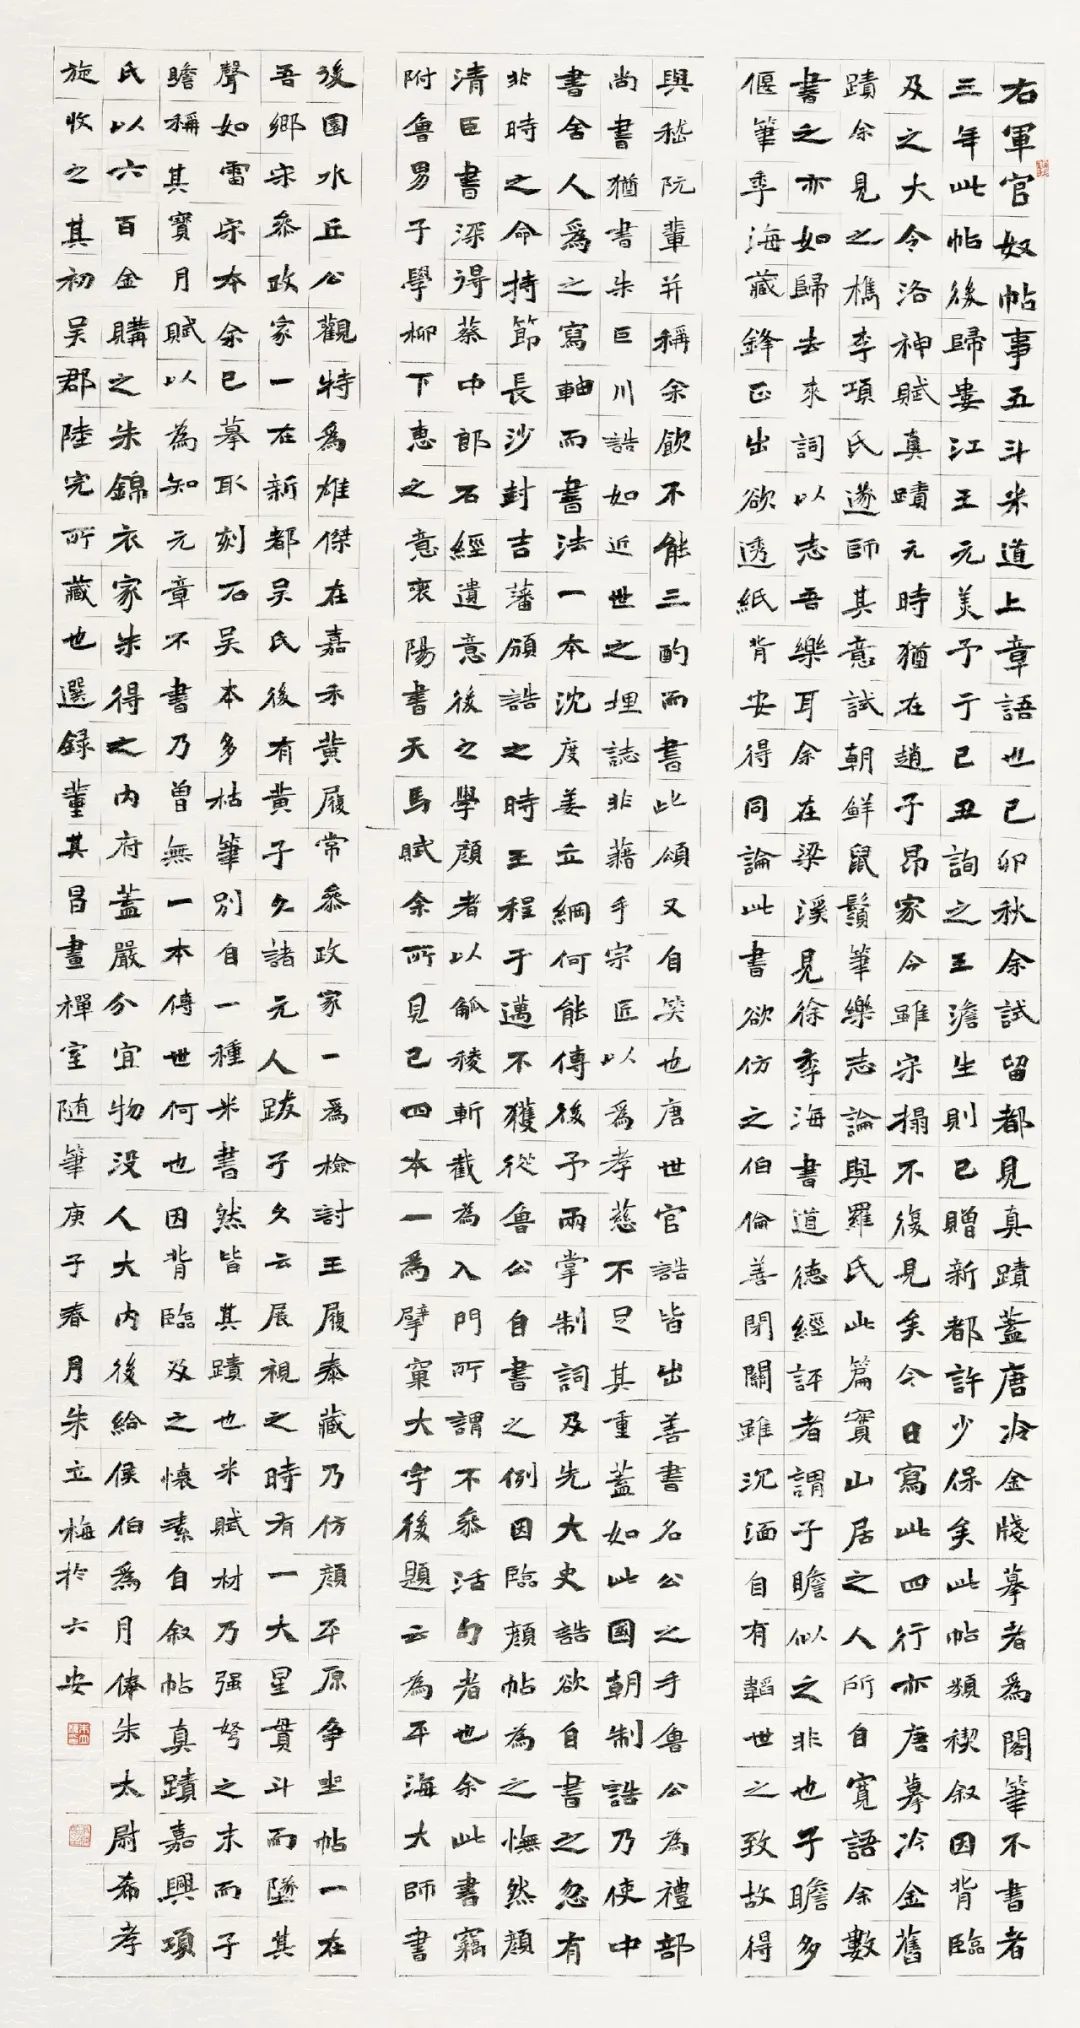 右軍官奴帖事五斗米道上章語也己卯秋余試留都見真蹟蓋唐冷金牋摹者為閣筆不書者
三年此帖後歸婁江王元美予于己丑詢之王澹生則已贈新都許少保矣此帖類禊叙因背臨
及之大令洛神賦真蹟元時猶在趙子昂家今雖宋搨不復見矣今日寫此四行亦唐摹冷金舊
蹟余見之檇李項氏遂師其意試朝鮮鼠鬚筆樂志論與羅氏此篇實山居之人所自寬語余數
書之亦如歸去來詞以志吾樂耳余在梁溪見徐季海書道德經評者謂子瞻似之非也子瞻多
偃筆季海藏鋒正出欲透紙背安得同論此書欲仿之伯倫善閉關雖沉湎自有韜世之致故得
與嵇阮輩并稱余飲不能三酌而書此頌又自笑也唐世官誥皆出善書名公之手魯公為禮部
尚書猶書朱巨川誥如近世之埋誌非藉手宗匠以為孝慈不足其重蓋如此國朝制誥乃使中
書舍人為之寫軸而書法一本沈度姜立綱何能傳後予兩掌制詞及先大史誥欲自書之忽有
非時之命持節長沙封吉藩頒誥之時王程于邁不獲從魯公自書之例因臨顏帖為之憮然顏
清臣書深得蔡中郎石經遺意後之學顏者以觚稜斬截為入門所謂不參活句者也余此書竊
附魯男子學柳下惠之意襄陽書天馬賦余所見已四本一為擘窠大字後題云為平海大師書
後園水丘公觀特為雄傑在嘉禾黄履常參政家一為檢討王履泰藏乃仿顏平原争坐帖一在
吾鄉宋參政家一在新都吴氏後有黄子久諸元人跋子久云展視之時有一大星貫斗而墜其
聲如雷宋本余已摹取刻石吴本多枯筆別自一種米書然皆其蹟也米賦材乃强弩之末而子
瞻稱其寶月賦以為知元章不書乃曾無一本傳世何也因背臨及之懷素自叙帖真蹟嘉興項
氏以六百金購之朱錦衣家朱得之内府蓋嚴分宜物没人大内後給侯伯為月俸朱太尉希孝
旋收之其初吴郡陸完所藏也選録董其昌畫禪室随筆庚子春月朱立梅於六安